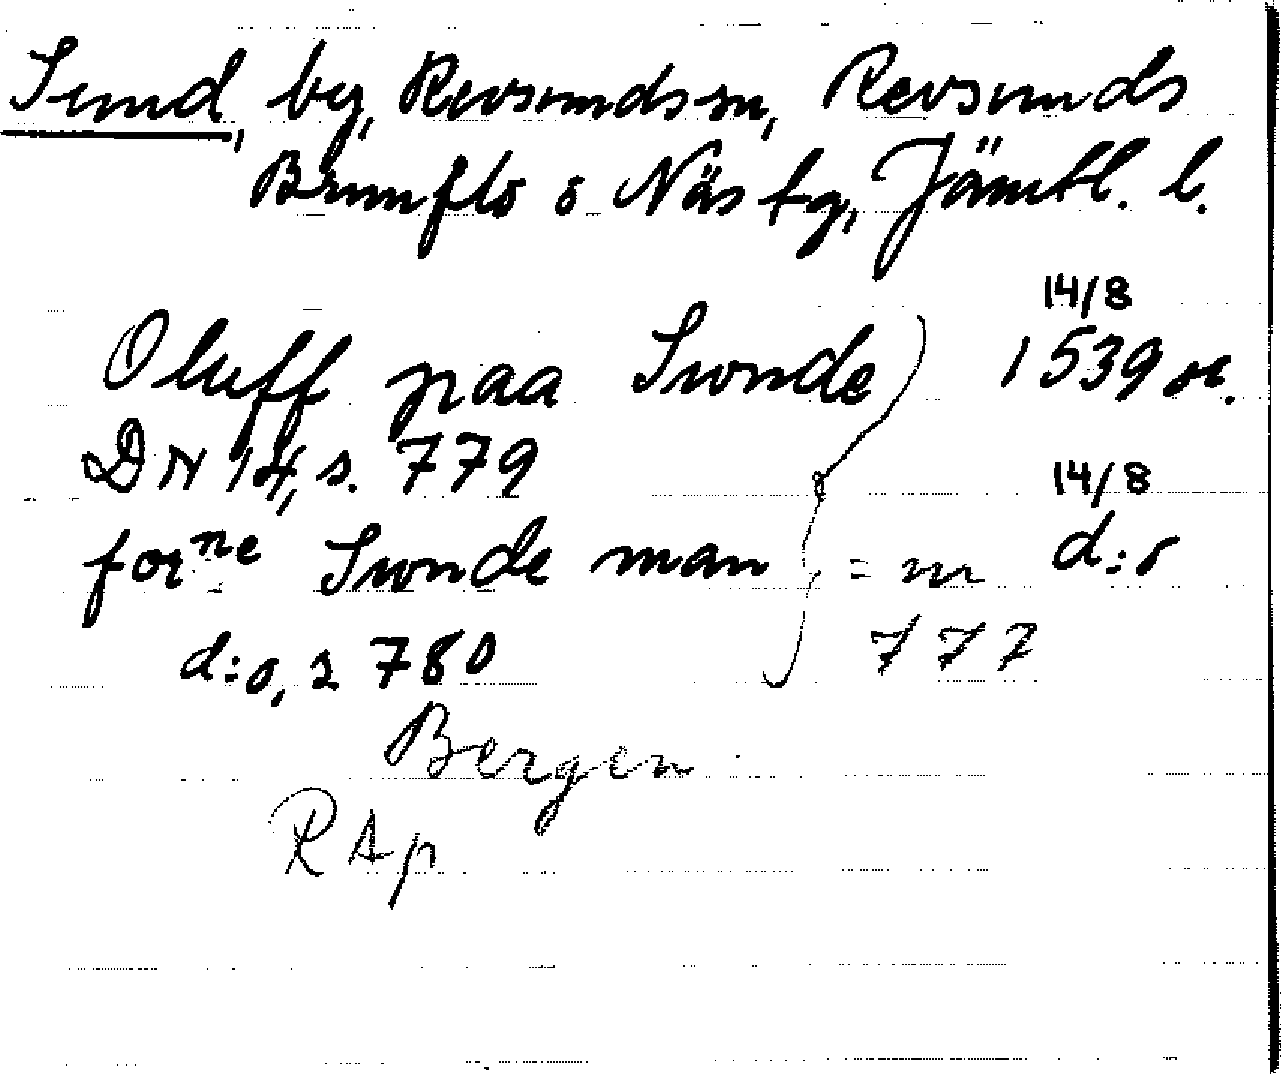 Sund, by, Revsunds sn, Revsunds
Brunflo o Näs tg, Jämtl. l.
14/8
Oluff paa Sunde 1539 or.
DN 14, s. 779
14/8
forne Sunde man = nr d:o
777
d:o, s 780
Bergen
RAp